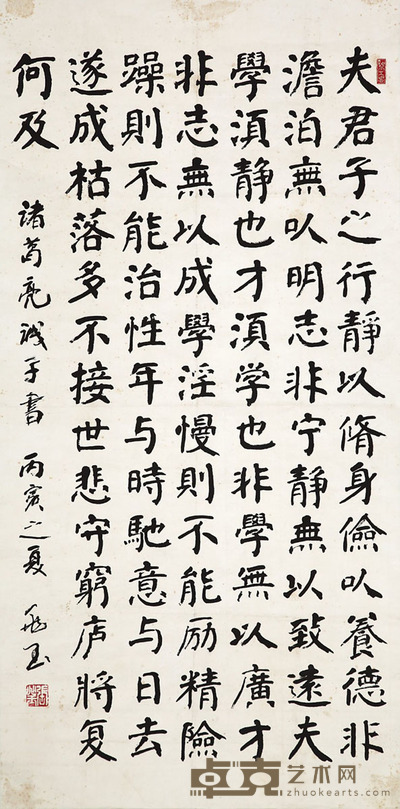 夫君子之行靜以脩身儉以養德非
澹泊無以明志非宁靜無以致遠夫
學須靜也才須学也非學無以廣才
非志無以成學淫慢則不能励精險
躁則不能治性年与時馳意与日去
遂成枯落多不接世悲守窮庐將复
何及
诸葛亮诫子書 丙寅之夏
卓克艺术网
zhuokearts.com